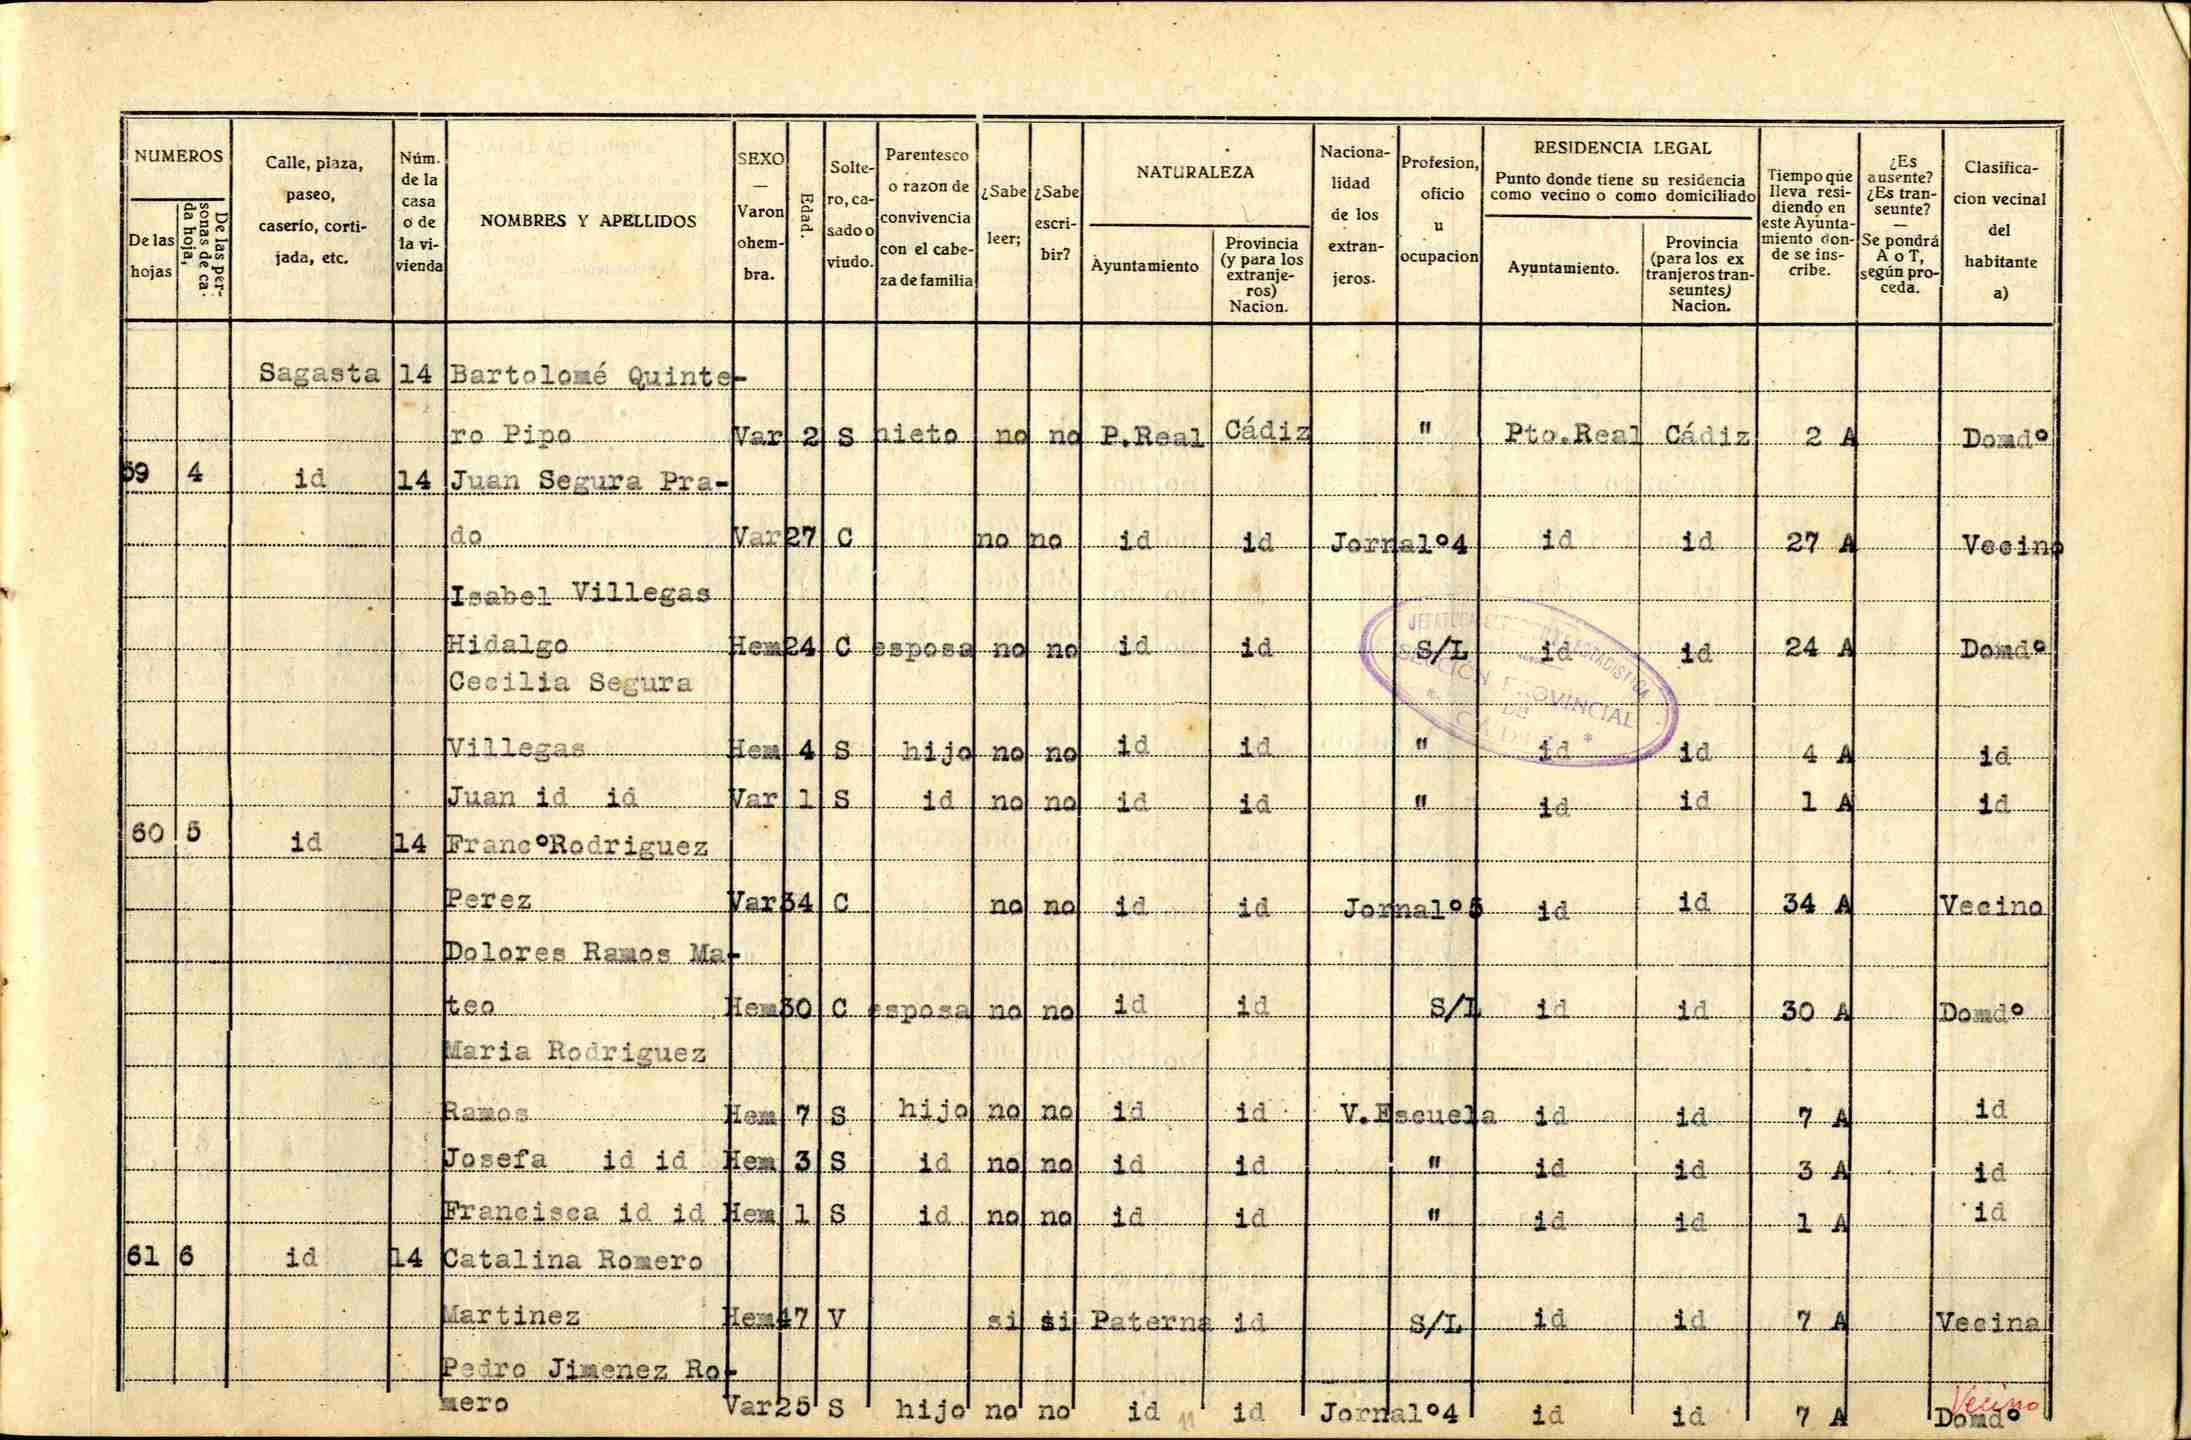 NUMEROS
De las hojas
De las personas de cada hoja,
Calle, plaza, paseo, caserío, cortijada, etc.
Núm. de la casa o de la vivienda
NOMBRES Y APELLIDOS
SEXO — Varon ohembra.
Edad.
Soltero, casado o viudo.
Parentesco o razon de convivencia con el cabeza de familia
¿Sabe leer;
¿Sabe escribir?
NATURALEZA
Ayuntamiento
Provincia (y para los extranjeros) Nacion.
Nacionalidad de los extranjeros.
Profesion, oficio u ocupacion
RESIDENCIA LEGAL
Punto donde tiene su residencia como vecino o como domiciliado
Ayuntamiento.
Provincia (para los ex tranjeros transeuntes) Nacion.
Tiempo que lleva residiendo en este Ayuntamiento donde se inscribe.
¿Es ausente? ¿Es transeunte? — Se pondrá A o T, según proceda.
Clasificacion vecinal del habitante a)
Sagasta 14 Bartolomé Quinte-
ro Pipo Var 2 S nieto no no P.Real Cádiz " Pto.Real Cádiz 2 A Domdº
59 4 id 14 Juan Segura Pra-
do Var 27 C no no id id Jornalº4 id id 27 A Vecino
Isabel Villegas
Hidalgo Hem 24 C esposa no no id id S/L id id 24 A Domdº
Cecilia Segura
Villegas Hem 4 S hijo no no id id " id id 4 A id
Juan id id Var 1 S id no no id id " id id 1 A id
60 5 id 14 FrancºRodriguez
Perez Var 34 C no no id id Jornalº5 id id 34 A Vecino
Dolores Ramos Ma-
teo Hem 30 C esposa no no id id S/L id id 30 A Domdº
Maria Rodriguez
Ramos Hem 7 S hijo no no id id V.Escuela id id 7 A id
Josefa id id Hem 3 S id no no id id " id id 3 A id
Francisca id id Hem 1 S id no no id id " id id 1 A id
61 6 id 14 Catalina Romero
Martinez Hem 47 V si si Paterna id S/L id id 7 A Vecina
Pedro Jimenez Ro-
Vecino
mero Var 25 S hijo no no id id Jornalº4 id id 7 A Domdº
SECCIÓN PROVINCIAL
DE
CADIZ *